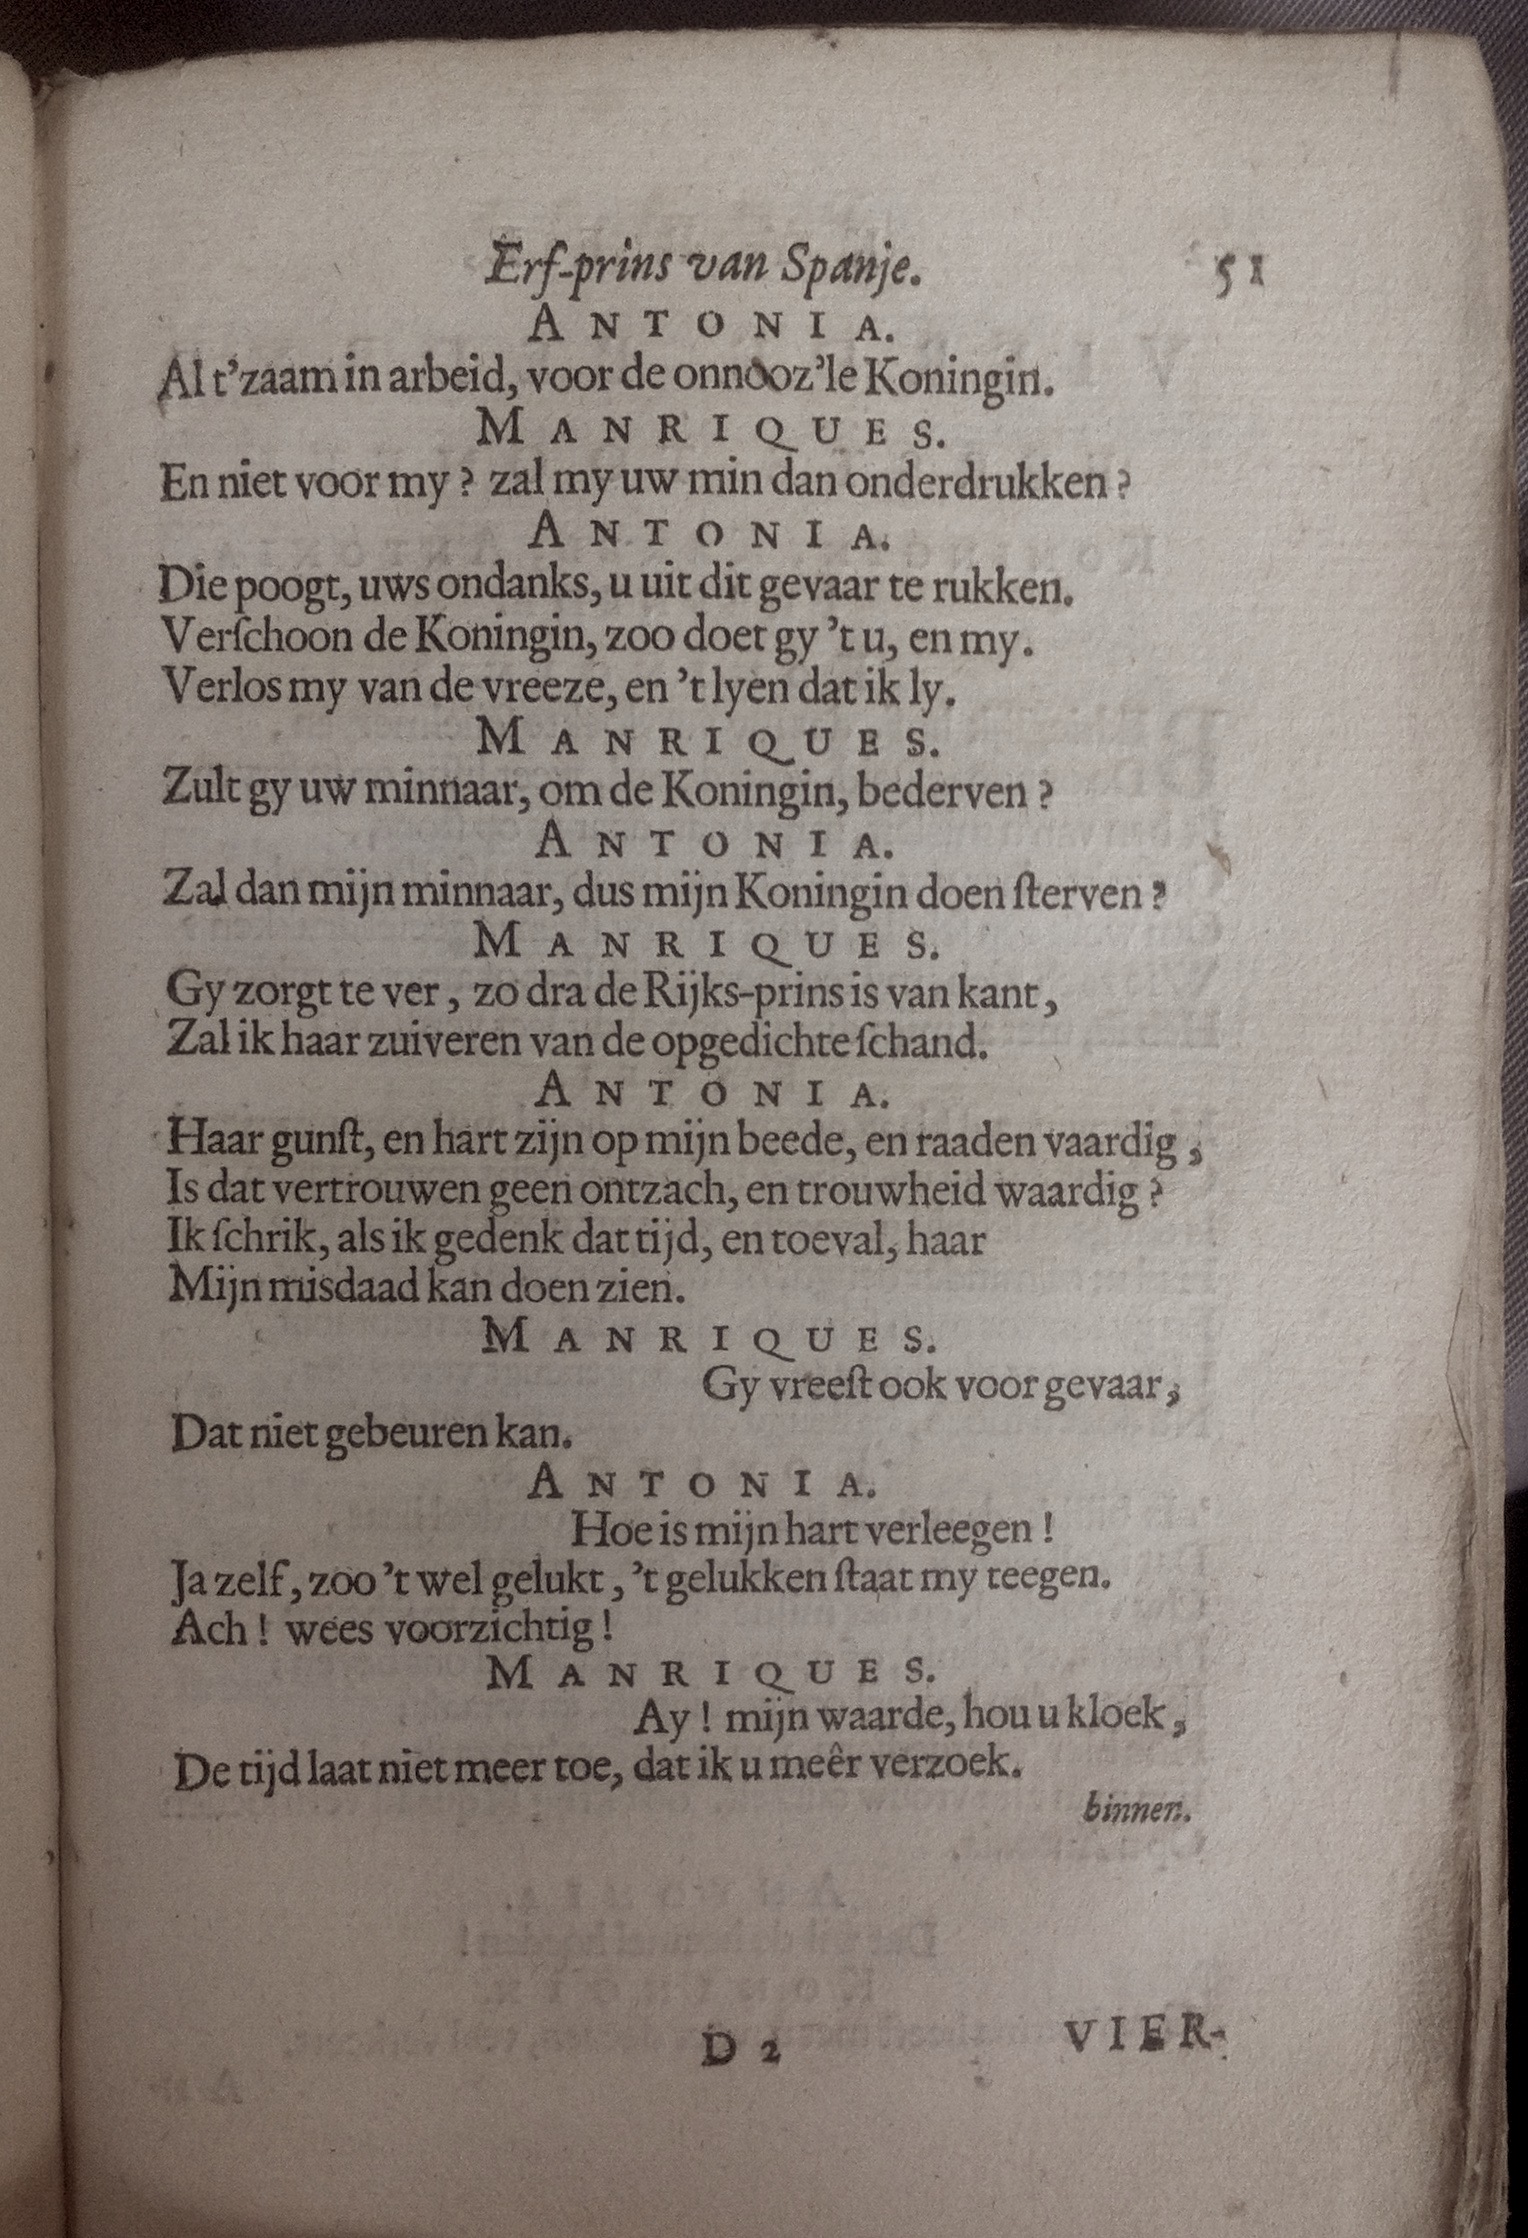 Erf-prins van Spanje. 51
ANTONIA.
Al t'zaam in arbeid, voor de onnooz'le Koningin.
MANRIQUES.
En niet voor my? zal my uw min dan onderdrukken?
ANTONIA.
Die poogt, uws ondanks, u uit dit gevaar te rukken.
Verſchoon de Koningin, zoo doet gy 't u, en my.
Verlos my van de vreeze, en 't lyen dat ik ly.
MANRIQUES.
Zult gy uw minnaar, om de Koningin, bederven?
ANTONIA.
Zal dan mijn minnaar, dus mijn Koningin doen ſterven?
MANRIQUES.
Gy zorgt te ver, zo dra de Rijks-prins is van kant,
Zal ik haar zuiveren van de opgedichte ſchand.
ANTONIA.
Haar gunſt, en hart zijn op mijn beede, en raaden vaardig,
Is dat vertrouwen geen ontzach, en trouwheid waardig?
Ik ſchrik, als ik gedenk dat tijd, en toeval, haar
Mijn misdaad kan doen zien.
MANRIQUES.
Gy vreeſt ook voor gevaar,
Dat niet gebeuren kan.
ANTONIA.
Hoe is mijn hart verleegen!
Ja zelf, zoo 't wel gelukt, 't gelukken ſtaat my teegen.
Ach! wees voorzichtig!
MANRIQUES.
Ay! mijn waarde, hou u kloek,
De tijd laat niet meer toe, dat ik u meêr verzoek.
binnen.
D 2 VIER-